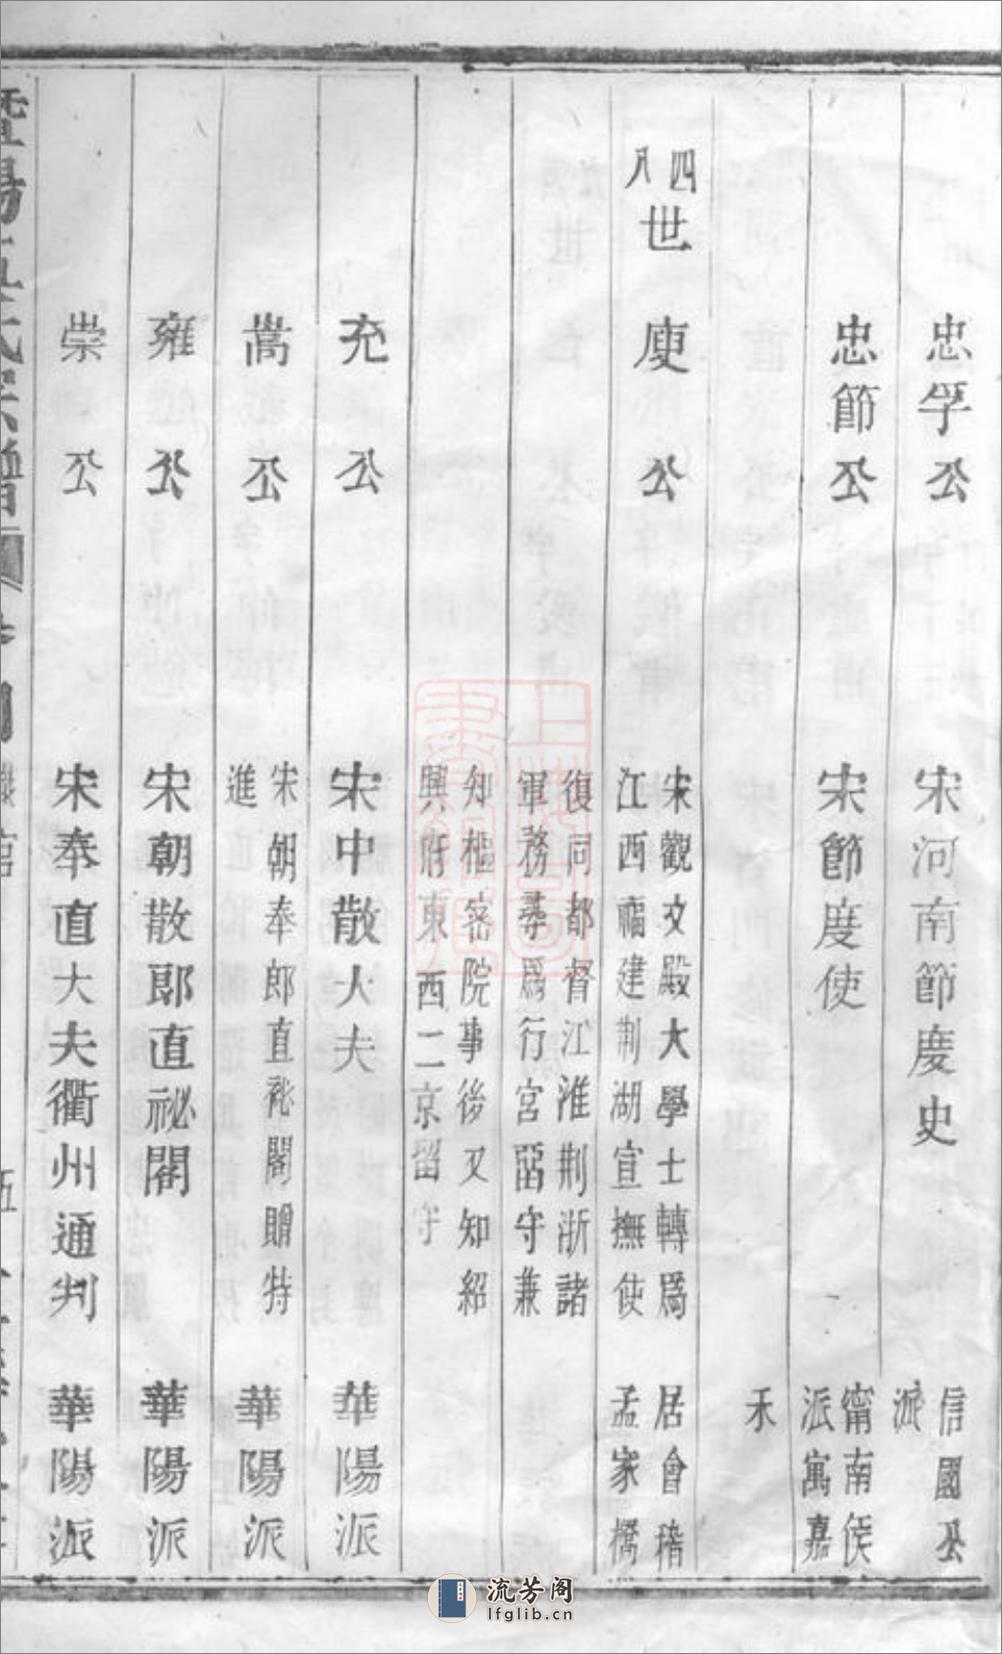 忠孚公 宋河南節度史 信國公
派
忠節公 宋節度使 甯南侯
派寓嘉
禾
四八世
庾公 宋觀文殿大學士轉爲
江西福建荆湖宣撫使
居會稽
孟家橋
復同都督江淮荆浙諸
軍務尋爲行宫畱守兼
知樞密院事後又知紹
興府東西二京留守
充公 宋中散人夫 華陽派
嵩公 宋朝奉郎直祕閣贈特
進
華陽派
雍公 宋朝散郎直祕閣 華陽派
崇公 宋奉直大夫衢州通判 華陽派
流芳阁
lfglib.cn